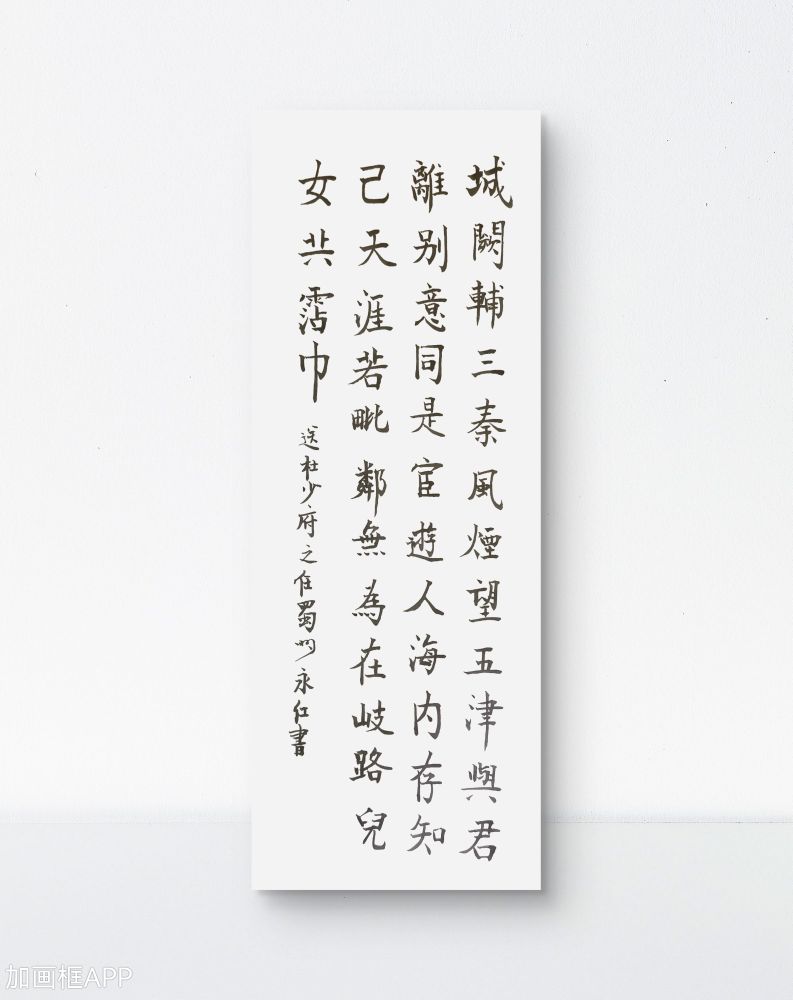 城闕輔三秦風煙望五津與君
離别意同是宦遊人海内存知
己天涯若毗鄰無為在岐路兒
女共霑巾
送杜少府之任蜀州永红書
加画框APP